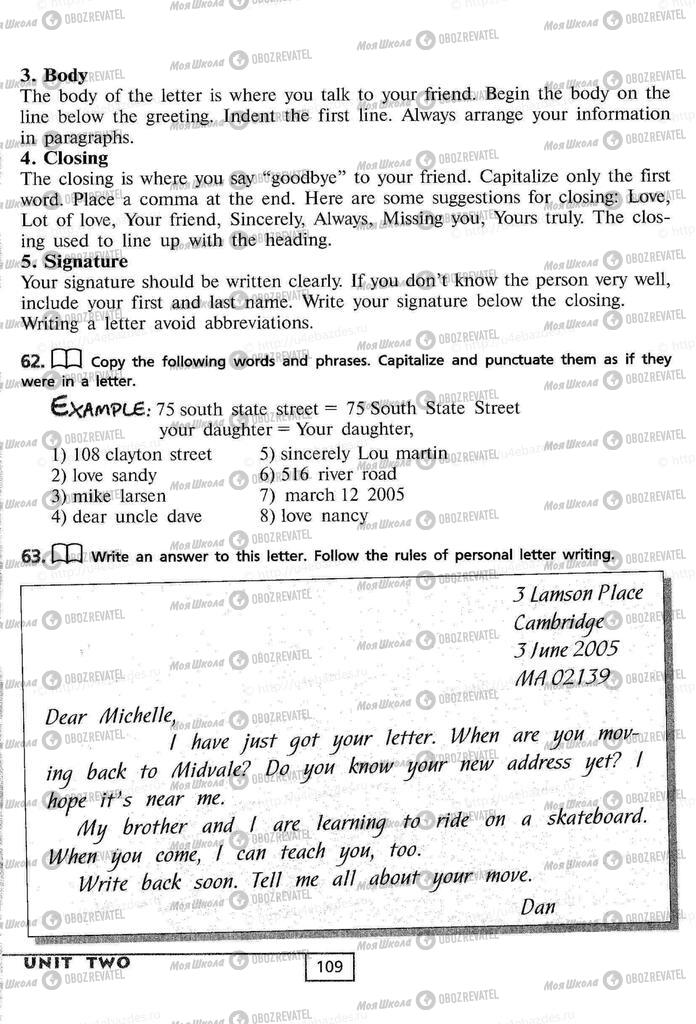 3. Body
The body of the letter is where you talk to your friend. Begin the body on the
line below the greeting. Indent the first line. Always arrange your information
in paragraphs.
4. Closing
The closing is where you say “goodbye” to your friend. Capitalize only the first
word. Place a comma at the end. Here are some suggestions for closing: Love,
Lot of love, Your friend, Sincerely, Always, Missing you, Yours truly. The clos-
ing used to line up with the heading.
5. Signature
Your signature should be written clearly. If you don’t know the person very well,
include your first and last name. Write your signature below the closing.
Writing a letter avoid abbreviations.
62. Copy the following words and phrases. Capitalize and punctuate them as if they
were in a letter.
EXAMPLE: 75 south state street = 75 South State Street
your daughter = Your daughter,
1) 108 clayton street
2) love sandy
3) mike larsen
4) dear uncle dave
5) sincerely Lou martin
6) 516 river road
7) march 12 2005
8) love nancy
63. Write an answer to this letter. Follow the rules of personal letter writing.
3 Lamson Place
Cambridge
3 June 2005
MA 02139
Dear Michelle,
I have just got your letter. When are you mov-
ing back to Midvale? Do you know your new address yet? I
hope it’s near me.
My brother and I are learning to ride on a skateboard.
When you come, I can teach you, too.
Write back soon. Tell me all about your move.
Dan
UNIT TWO
109